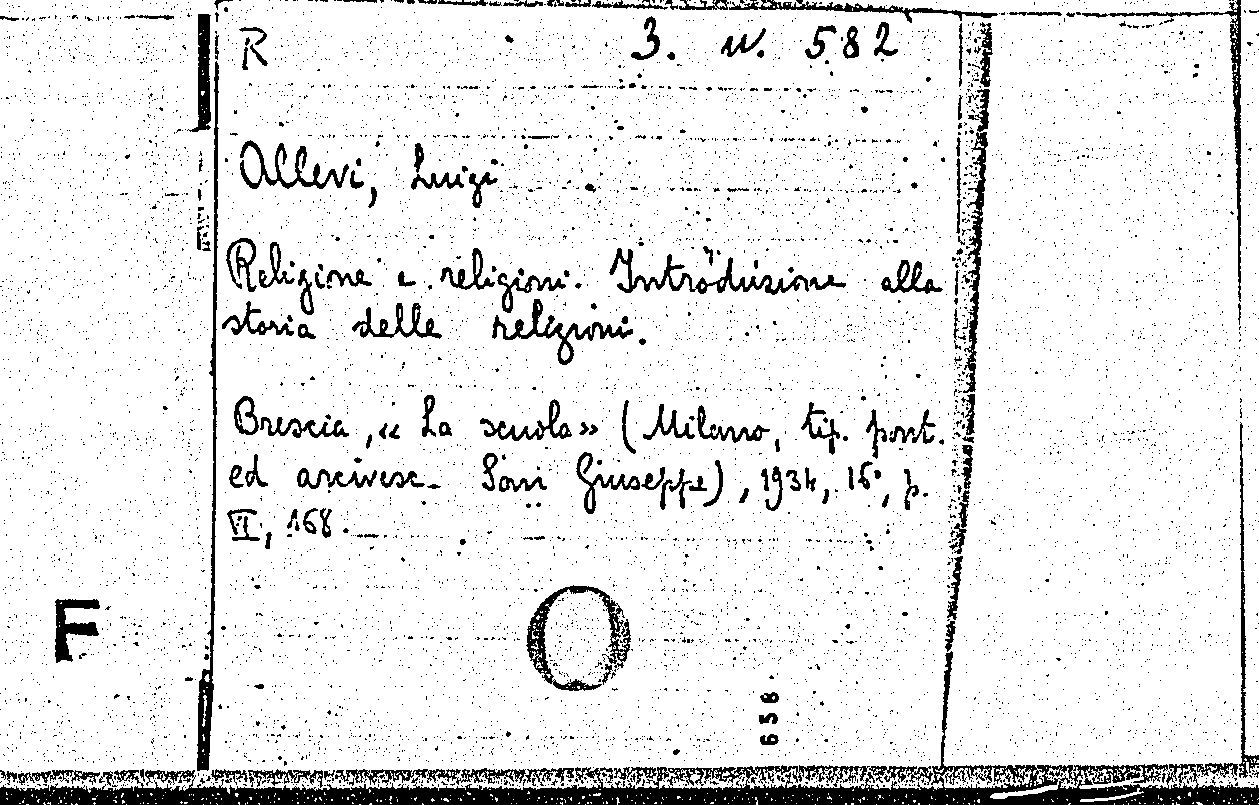 R 3. w. 582
Allevi, Luigi
Religione e religioni. Introduzione alla
storia delle religioni.
Brescia, « La scuola » (Milano, tip. pont.
ed arcivesc. Giuseppe), 1934, 16°, p.
VII, 168.
F
658